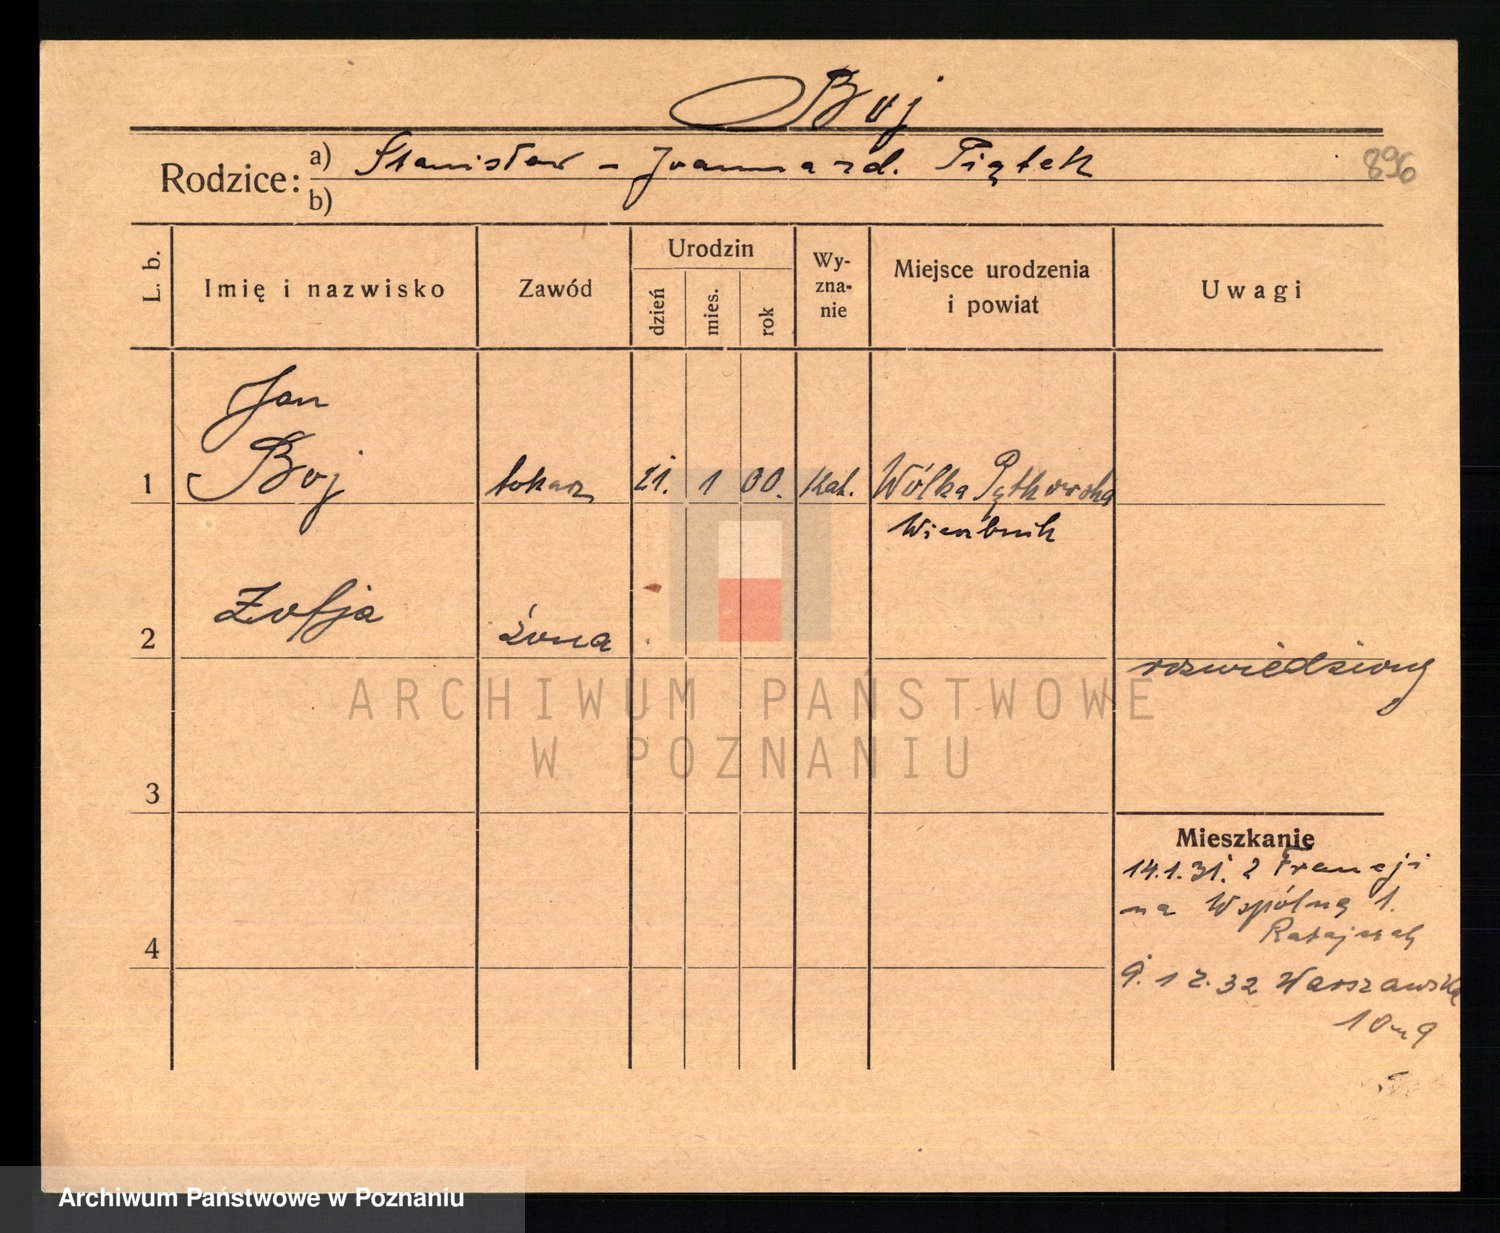 Boj
Rodzice:
a) Stanisław – Joanna zd. Piątek
896
b)
L. b.
Imię i nazwisko
Zawód
Urodzin
dzień
mies.
rok
Wy-
zna-
nie
Miejsce urodzenia
i powiat
Uwagi
Jan
Boj
1
tokarz
21. 1 00.
Kat.
Wólka Pętkowska
Wierzbnik
Zofja
2
żona
rozwiedziony
3
Mieszkanie
14.1.31. z Francji
na Wspólną 1.
Ratajczak
4
9.12.32 Warszawska
10 m 9
ARCHIWUM PAŃSTWOWE
W POZNANIU
Archiwum Państwowe w Poznaniu